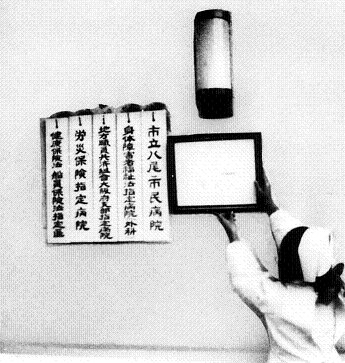 市立八尾市民病院
身体障害者福祉法指定病院 外科
地方職員共済組合大阪府支部指定病院
労災保険指定病院
健康保険法 船員保険法指定医